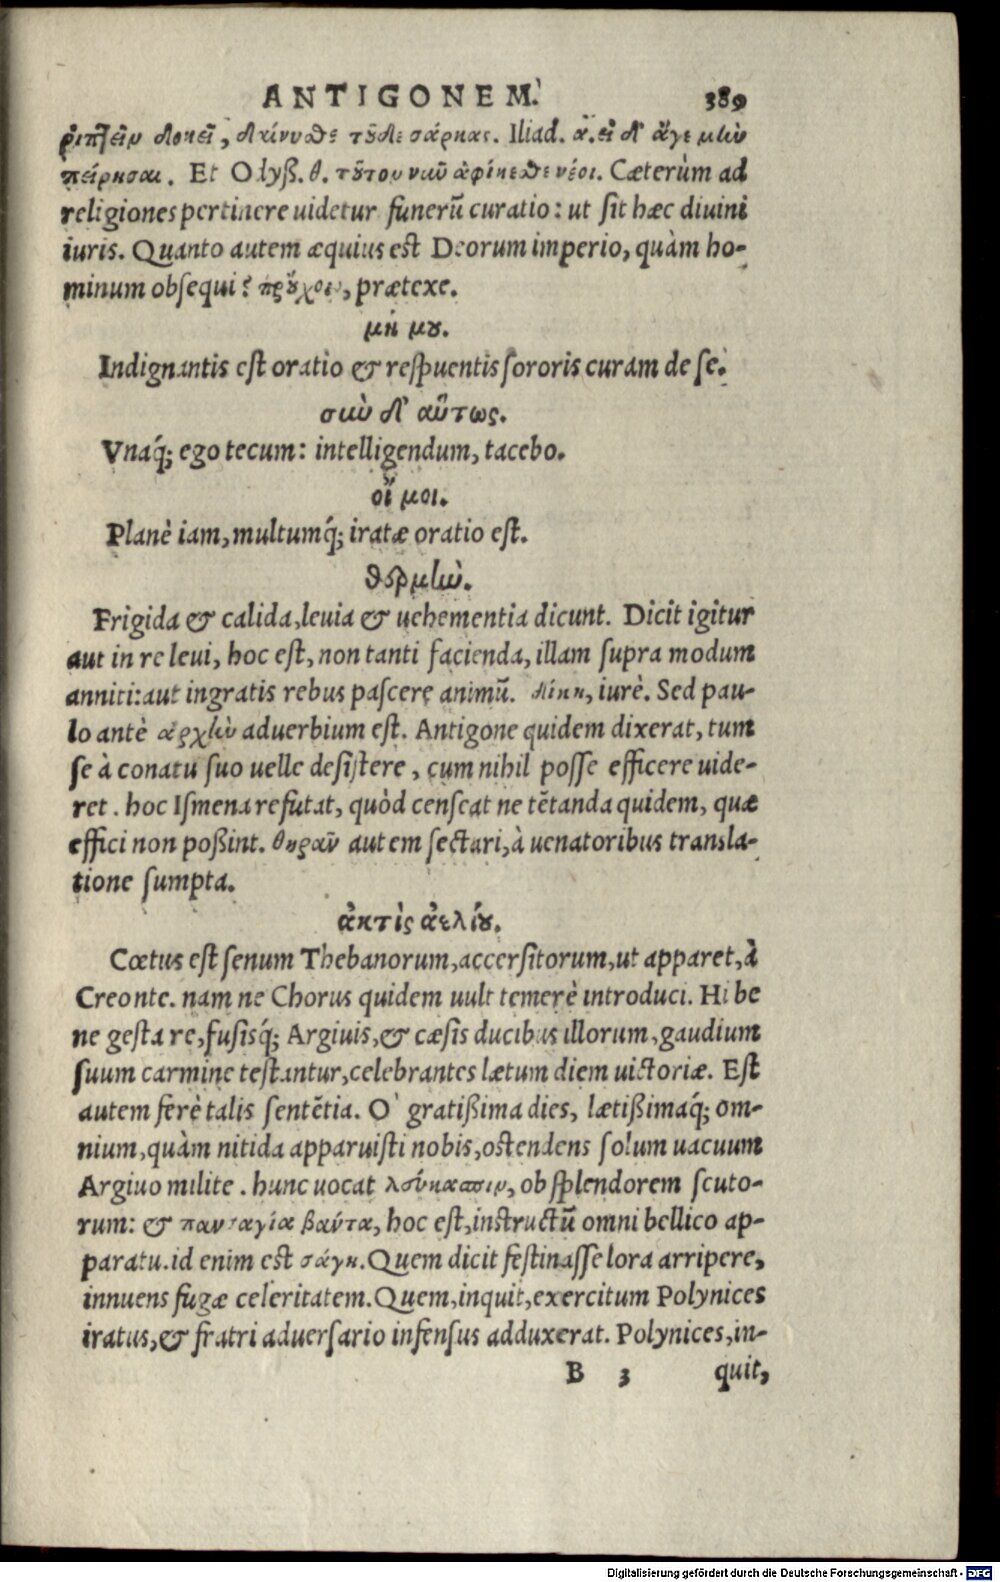 ANTIGONEM. 389
ῥιπτεῖν δοκεῖ, δαίνυσθε τοῦδε σάρκας. Iliad. α. εἰ δ' ἄγε μὴν
πείρησαι. Et Odyß. θ. τούτου νῦν ἀφίκεσθε νέοι. Cæterùm ad
religiones pertinere uidetur funerū curatio: ut sit hæc diuini
iuris. Quanto autem æquius est Deorum imperio, quàm ho-
minum obsequi? προὔχοιο, prætexe.
μή μου.
Indignantis est oratio & respuentis sororis curam de se.
σὺν δ' αὕτως.
Vnaq́; ego tecum: intelligendum, tacebo.
οἴ μοι.
Planè iam, multumq́; iratæ oratio est.
θερμὴν.
Frigida & calida, leuia & uehementia dicunt. Dicit igitur
aut in re leui, hoc est, non tanti facienda, illam supra modum
anniti: aut ingratis rebus pascere animū. δίκῃ, iurè. Sed pau-
lo antè ἀρχὴν aduerbium est. Antigone quidem dixerat, tum
se à conatu suo uelle desistere, cum nihil posse efficere uide-
ret. hoc Ismena refutat, quòd censeat ne tētanda quidem, quæ
effici non poßint. θηρᾶν autem sectari, à uenatoribus transla-
tione sumpta.
ἀκτὶς ἀελίου.
Cœtus est senum Thebanorum, accersitorum, ut apparet, à
Creonte. nam ne Chorus quidem uult temerè introduci. Hi be
ne gesta re, fusisq́; Argiuis, & cæsis ducibus illorum, gaudium
suum carmine testantur, celebrantes lætum diem uictoriæ. Est
autem ferè talis sentētia. O` gratißima dies, lætißimaq́; om-
nium, quàm nitida apparuisti nobis, ostendens solum uacuum
Argiuo milite. hunc uocat λεύκασπιν, ob splendorem scuto-
rum: & πανσαγίᾳ βαύτα, hoc est, instructū omni bellico ap-
paratu. id enim est σάγη. Quem dicit festinasse lora arripere,
innuens fugæ celeritatem. Quem, inquit, exercitum Polynices
iratus, & fratri aduersario infensus adduxerat. Polynices, in-
B 3 quit,
Digitalisierung gefördert durch die Deutsche Forschungsgemeinschaft - DFG